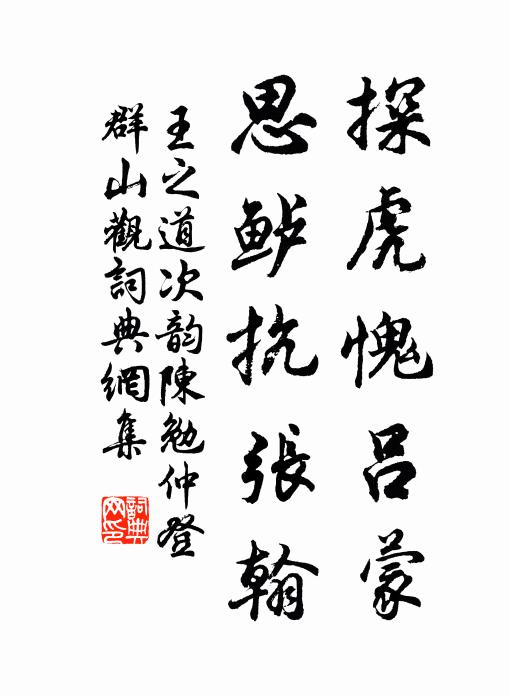 探虎愧吕蒙
思鲈抗張翰
王之道次韵陳勉仲登
群山觀詞典網集
詞典网印